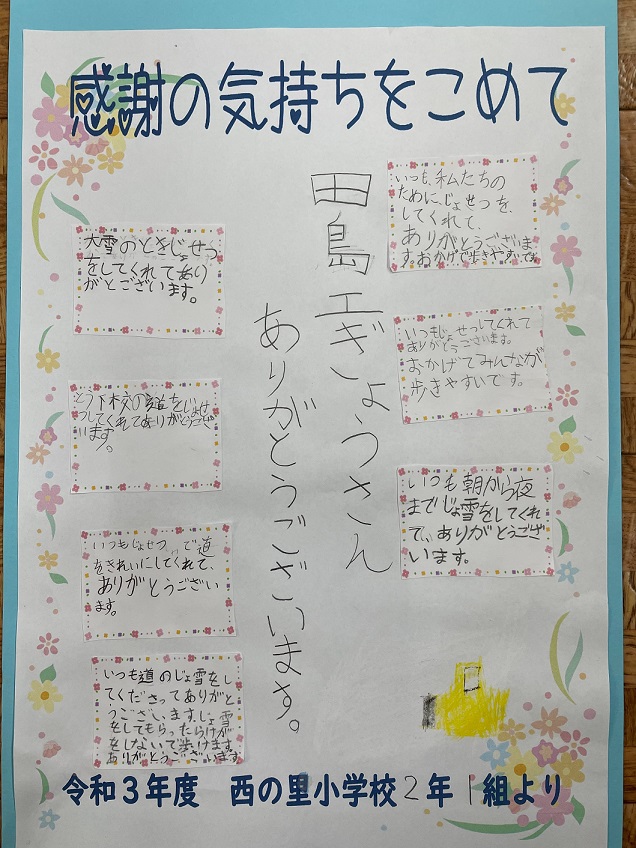 感謝の気持ちをこめて
田島工ぎょうさん
ありがとうございます。
いつも、私たちの
ために、じょせつを、
してくれて、
ありがとうございま
す。おかげで歩きやすいです
いつもじょせつしてくれて
ありがとうございます。
おかげでみんなが
歩きやすいです。
いつも朝から夜
までじょ雪をしてくれ
て、ありがとうござ
います。
大雪のときじょせつ
をしてくれてあり
がとございます。
とう下校の道をじょせ
つしてくれてありがとうござ
います。
いつもじょせつ、で道
をきれいにしてくれて、
ありがとうござい
ます。
いつも道のじょ雪をし
てくださってありがと
うございます。じょ雪
をしてもらったらけが
をしないで歩けます。
ありがとうございます
令和3年度 西の里小学校2年1組より